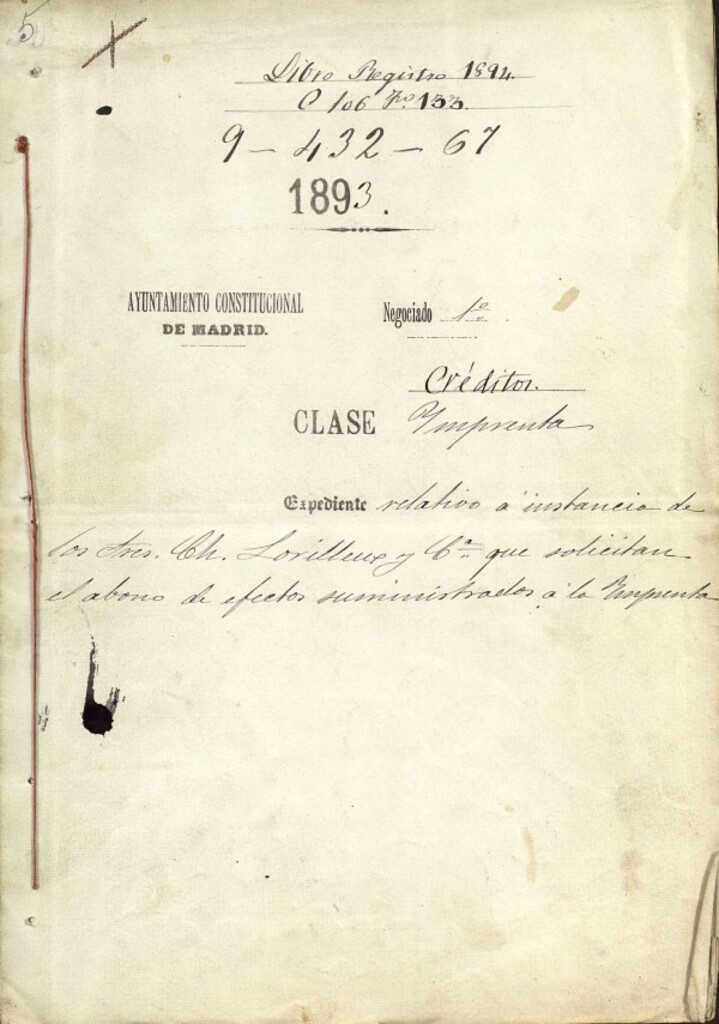 5
Libro Registro 1894.
C 106 Fo. 133.
9 - 432 - 67
1893.
AYUNTAMIENTO CONSTITUCIONAL
DE MADRID.
Negociado 1º
Créditos.
CLASE Ymprenta
Expediente relativo a instancia de
los Sres. Ch. Lorilleux y Cª que solicitan
el abono de efectos suministrados á la Ymprenta